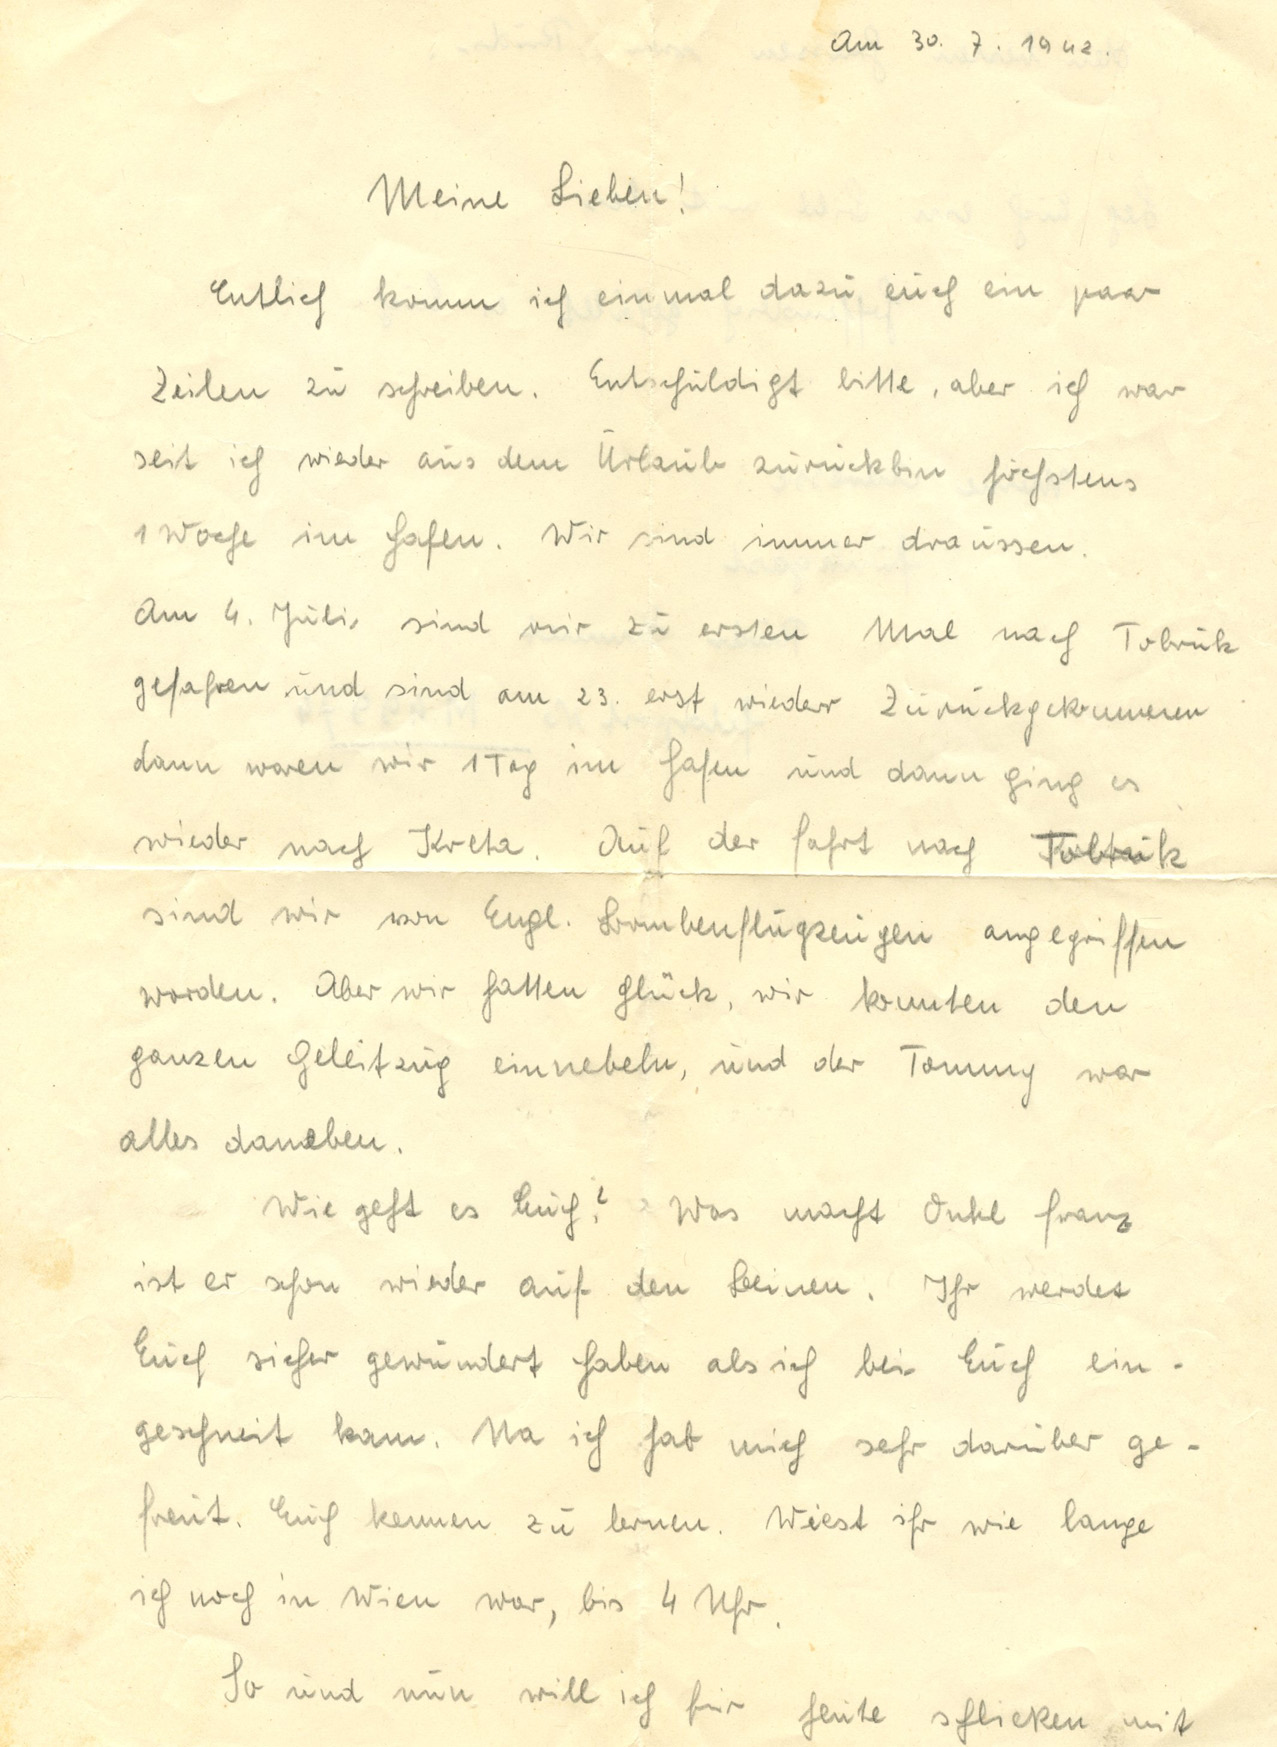 Am 30. 7. 1942.
Meine Lieben!
Entlich komm ich einmal dazu euch ein paar
Zeilen zu schreiben. Entschuldigt bitte, aber ich war
seit ich wieder aus dem Urlaub zurückbin höchstens
1 Woche im Hafen. Wir sind immer draussen.
Am 4. Juli, sind wir zu ersten Mal nach Tobruk
gefahren und sind am 23. erst wiederr Zurückgekommenen
dann waren wir 1 Tag im Hafen und dann ging es
wieder nach Kreta. Auf der fahrt nach Tobruk
sind wir von Engl. Bombenflugzeugen angegriffen
worden. Aber wir hatten Glück, wir konnten den
ganzen Geleitzug einnebeln, und der Tommy war
alles daneben.
Wie geht es Euch? Was macht Onkl Franz
ist er schon wieder auf den Beinen. Ihr werdet
Euch sicher gewundert haben als ich bei Euch ein-
geschneit kam. Na ich hab mich sehr darüber ge-
freut. Euch kennen zu lernen. Wiest ihr wie lange
ich noch in Wien war, bis 4 Uhr.
So und nun will ich für heute schlieken mit